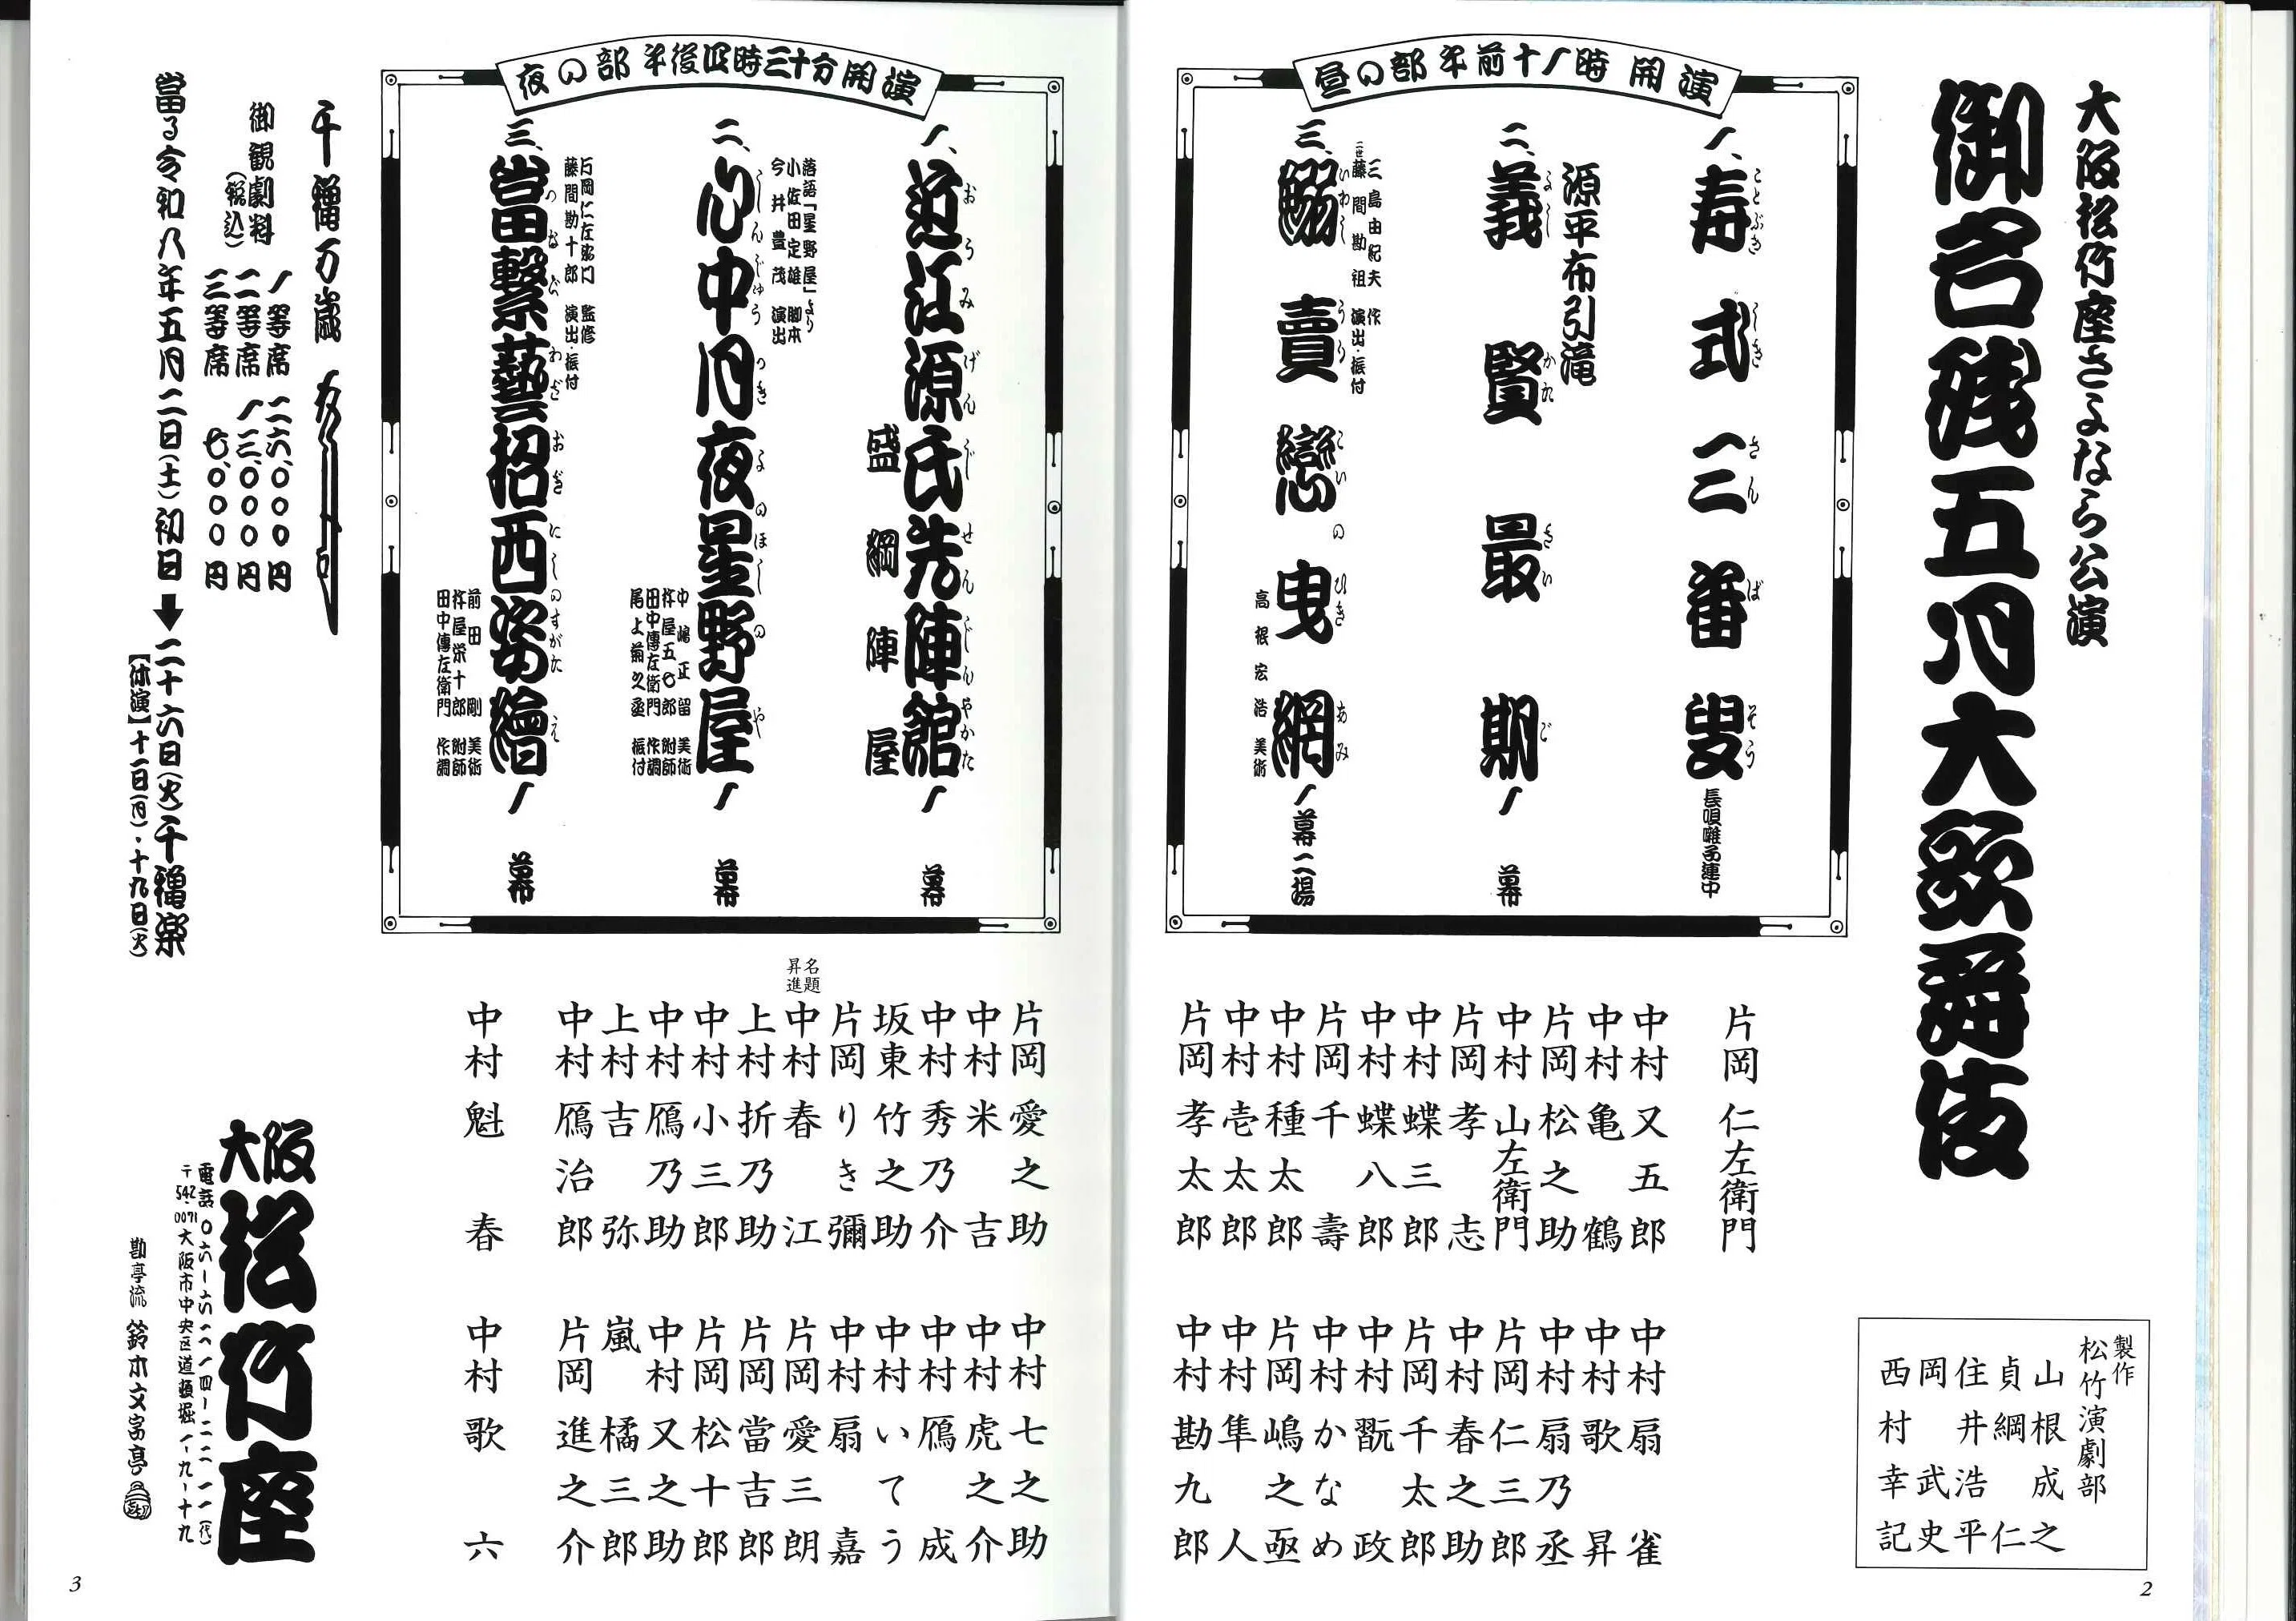 大阪松竹座さよなら公演
御名残五月大歌舞伎
製作
松竹演劇部
山根成之
貞綱仁
住井浩平
岡武史
西村幸記
昼の部午前十一時開演
一、寿式三番叟
ことぶきしきさんばそう
長唄囃子連中
源平布引滝
二、義賢最期 一幕
よしかたさいご
三島由紀夫 作
二世藤間勘祖 演出・振付
三、鰯賣戀曳網 一幕二場
いわしうりこいのひきあみ
高根宏浩 美術
片岡仁左衛門
中村又五郎
中村亀鶴
片岡松之助
中村山左衛門
片岡孝志
中村蝶三郎
中村蝶八郎
片岡千壽
中村種太郎
中村壱太郎
片岡孝太郎
中村扇雀
中村歌昇
中村扇乃丞
片岡仁三郎
中村春之助
片岡千太郎
中村翫政
中村かなめ
片岡嶋之亟
中村隼人
中村勘九郎
2
夜の部午後四時三十分開演
一、近江源氏先陣館 一幕
おうみげんじせんじんやかた
盛綱陣屋
落語「星野屋」より
小佐田定雄 脚本
今井豊茂 演出
二、心中月夜星野屋 一幕
しんじゅうつきよのほしのや
中嶋正留 美術
杵屋五七郎 附師
田中傳左衛門 作調
尾上菊之丞 振付
片岡仁左衛門 監修
藤間勘十郎 演出・振付
三、當繋藝招西姿繪 一幕
つなぐわざおぎにしのすがたえ
前田剛 美術
杵屋栄十郎 附師
田中傳左衛門 作調
片岡愛之助
中村米吉
中村秀乃介
坂東竹之助
片岡りき彌
名題昇進
中村春江
上村折乃助
中村小三郎
中村鴈乃助
上村吉弥
中村鴈治郎
中村魁春
中村七之助
中村虎之介
中村鴈成
中村いてう
中村扇嘉
片岡愛三朗
片岡當吉郎
片岡松十郎
中村又之助
嵐橘三郎
片岡進之介
中村歌六
千穐万歳
大叶
御観劇料
(税込)
一等席 二六、〇〇〇円
二等席 一三、〇〇〇円
三等席 七、〇〇〇円
當る令和八年五月二日(土)初日➡二十六日(火)千穐楽
【休演】十一日(月)・十九日(火)
大阪松竹座
電話〇六-六二一四-二二一一(代)
〒542-0071大阪市中央区道頓堀一-九-十九
勘亭流 鈴木文字亭
3